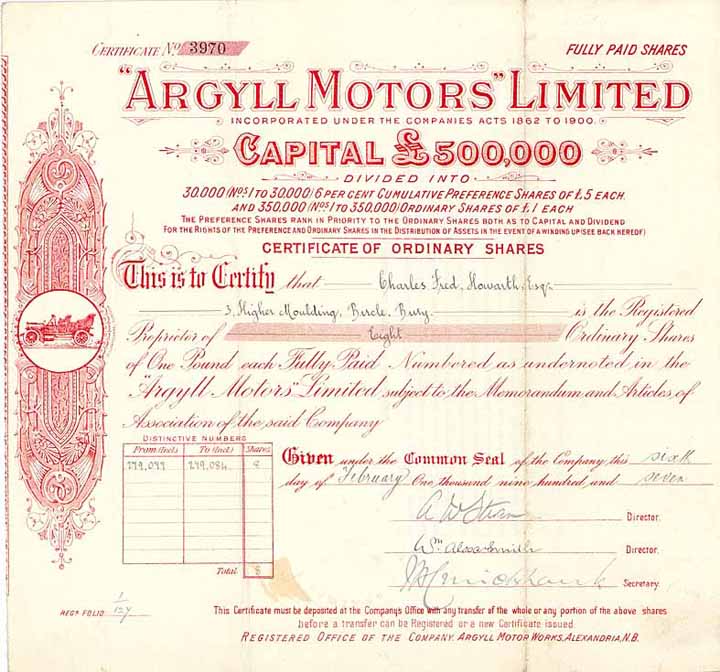 CERTIFICATE No. 3970
FULLY PAID SHARES
"ARGYLL MOTORS" LIMITED
INCORPORATED UNDER THE COMPANIES ACTS 1862 TO 1900.
CAPITAL £500,000
DIVIDED INTO
30,000 (Nos 1 TO 30,000) 6 PER CENT CUMULATIVE PREFERENCE SHARES OF £5 EACH
AND 350,000 (Nos 1 TO 350,000) ORDINARY SHARES OF £1 EACH
THE PREFERENCE SHARES RANK IN PRIORITY TO THE ORDINARY SHARES BOTH AS TO CAPITAL AND DIVIDEND
FOR THE RIGHTS OF THE PREFERENCE AND ORDINARY SHARES IN THE DISTRIBUTION OF ASSETS IN THE EVENT OF A WINDING UP (SEE BACK HEREOF)
CERTIFICATE OF ORDINARY SHARES
This is to Certify that Charles Fred. Howarth, Esq.
3, Higher Moulding, Bircle, Bury. is the Registered
Proprietor of Eight Ordinary Shares
of One Pound each Fully Paid Numbered as undernoted in the
"Argyll Motors" Limited subject to the Memorandum and Articles of
Association of the said Company
DISTINCTIVE NUMBERS
From (Incl.) To (Incl.) Shares
279,077 279,084 8
Total 8
Given under the Common Seal of the Company this sixth
day of February One thousand nine hundred and seven
Director.
Wm. Director.
Secretary.
REGR. FOLIO 1/127
This Certificate must be deposited at the Company's Office with any transfer of the whole or any portion of the above shares
before a transfer can be Registered or a new Certificate issued.
REGISTERED OFFICE OF THE COMPANY, ARGYLL MOTOR WORKS, ALEXANDRIA, N.B.